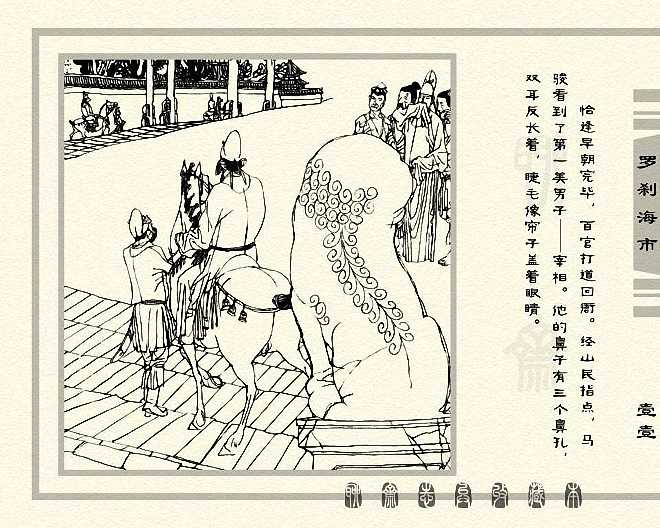 恰逢早朝完毕，百官打道回衙。经山民指点，马
骏看到了第一美男子——宰相。他的鼻子有三个鼻孔，
双耳反长着，睫毛像帘子盖着眼睛。
罗刹海市
壹壹